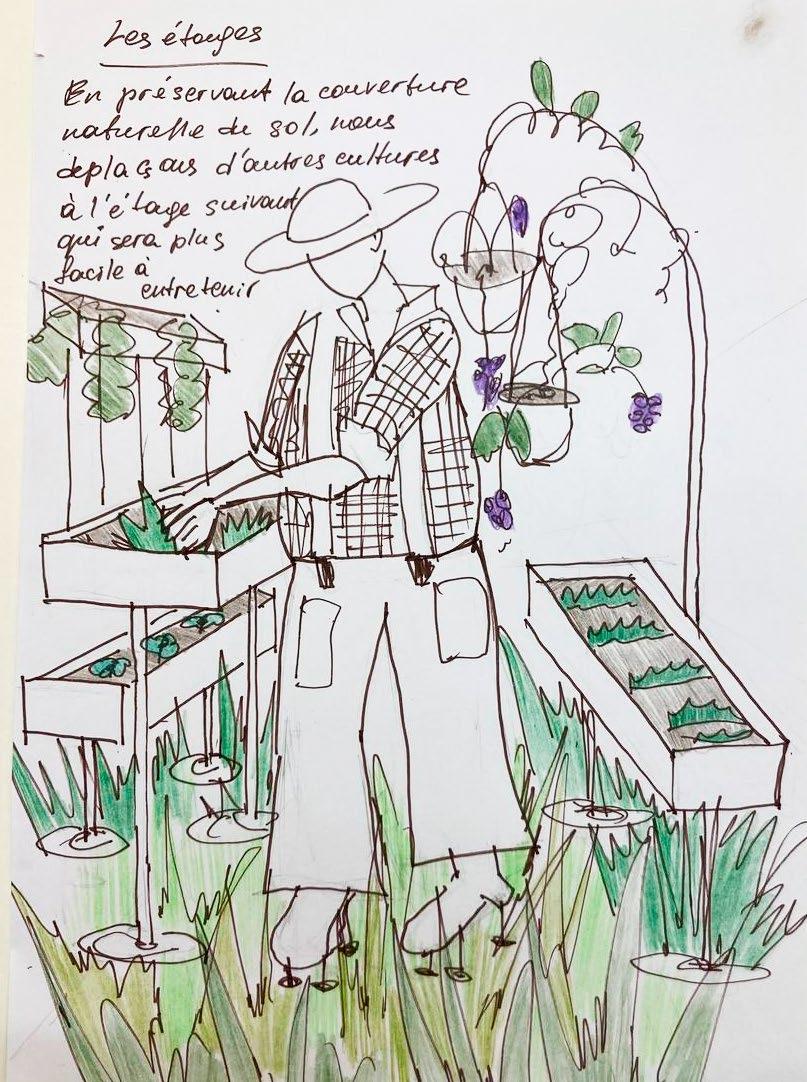 Les étages
En préservant la couverture
naturelle du sol, nous
deplaçons d'autres cultures
à l'étage suivant
qui sera plus
facile à
entretenir